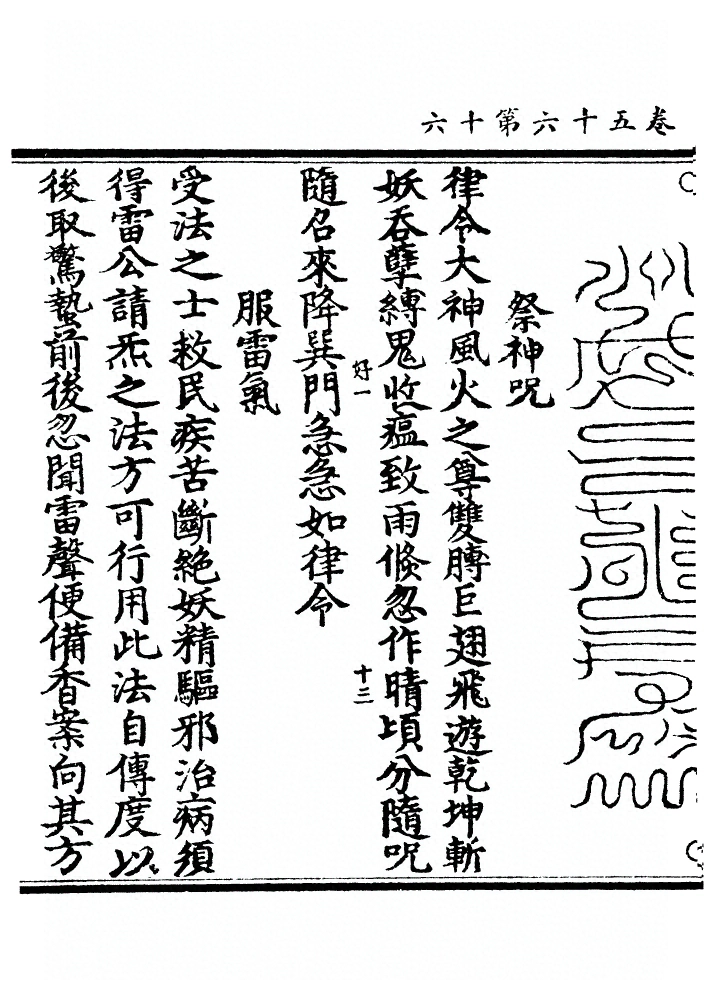 卷五十六第十六
祭神呪
律令大神風火之尊雙膊巨翅飛遊乾坤斬
妖吞孽縛鬼收瘟致雨倐忽作晴頃分隨呪
好一
十三
隨召來降巽門急急如律令
服雷氣
受法之士救民疾苦斷絕妖精驅邪治病須
得雷公請炁之法方可行用此法自傳度以
後取驚蟄前後忽聞雷聲便備香案向其方